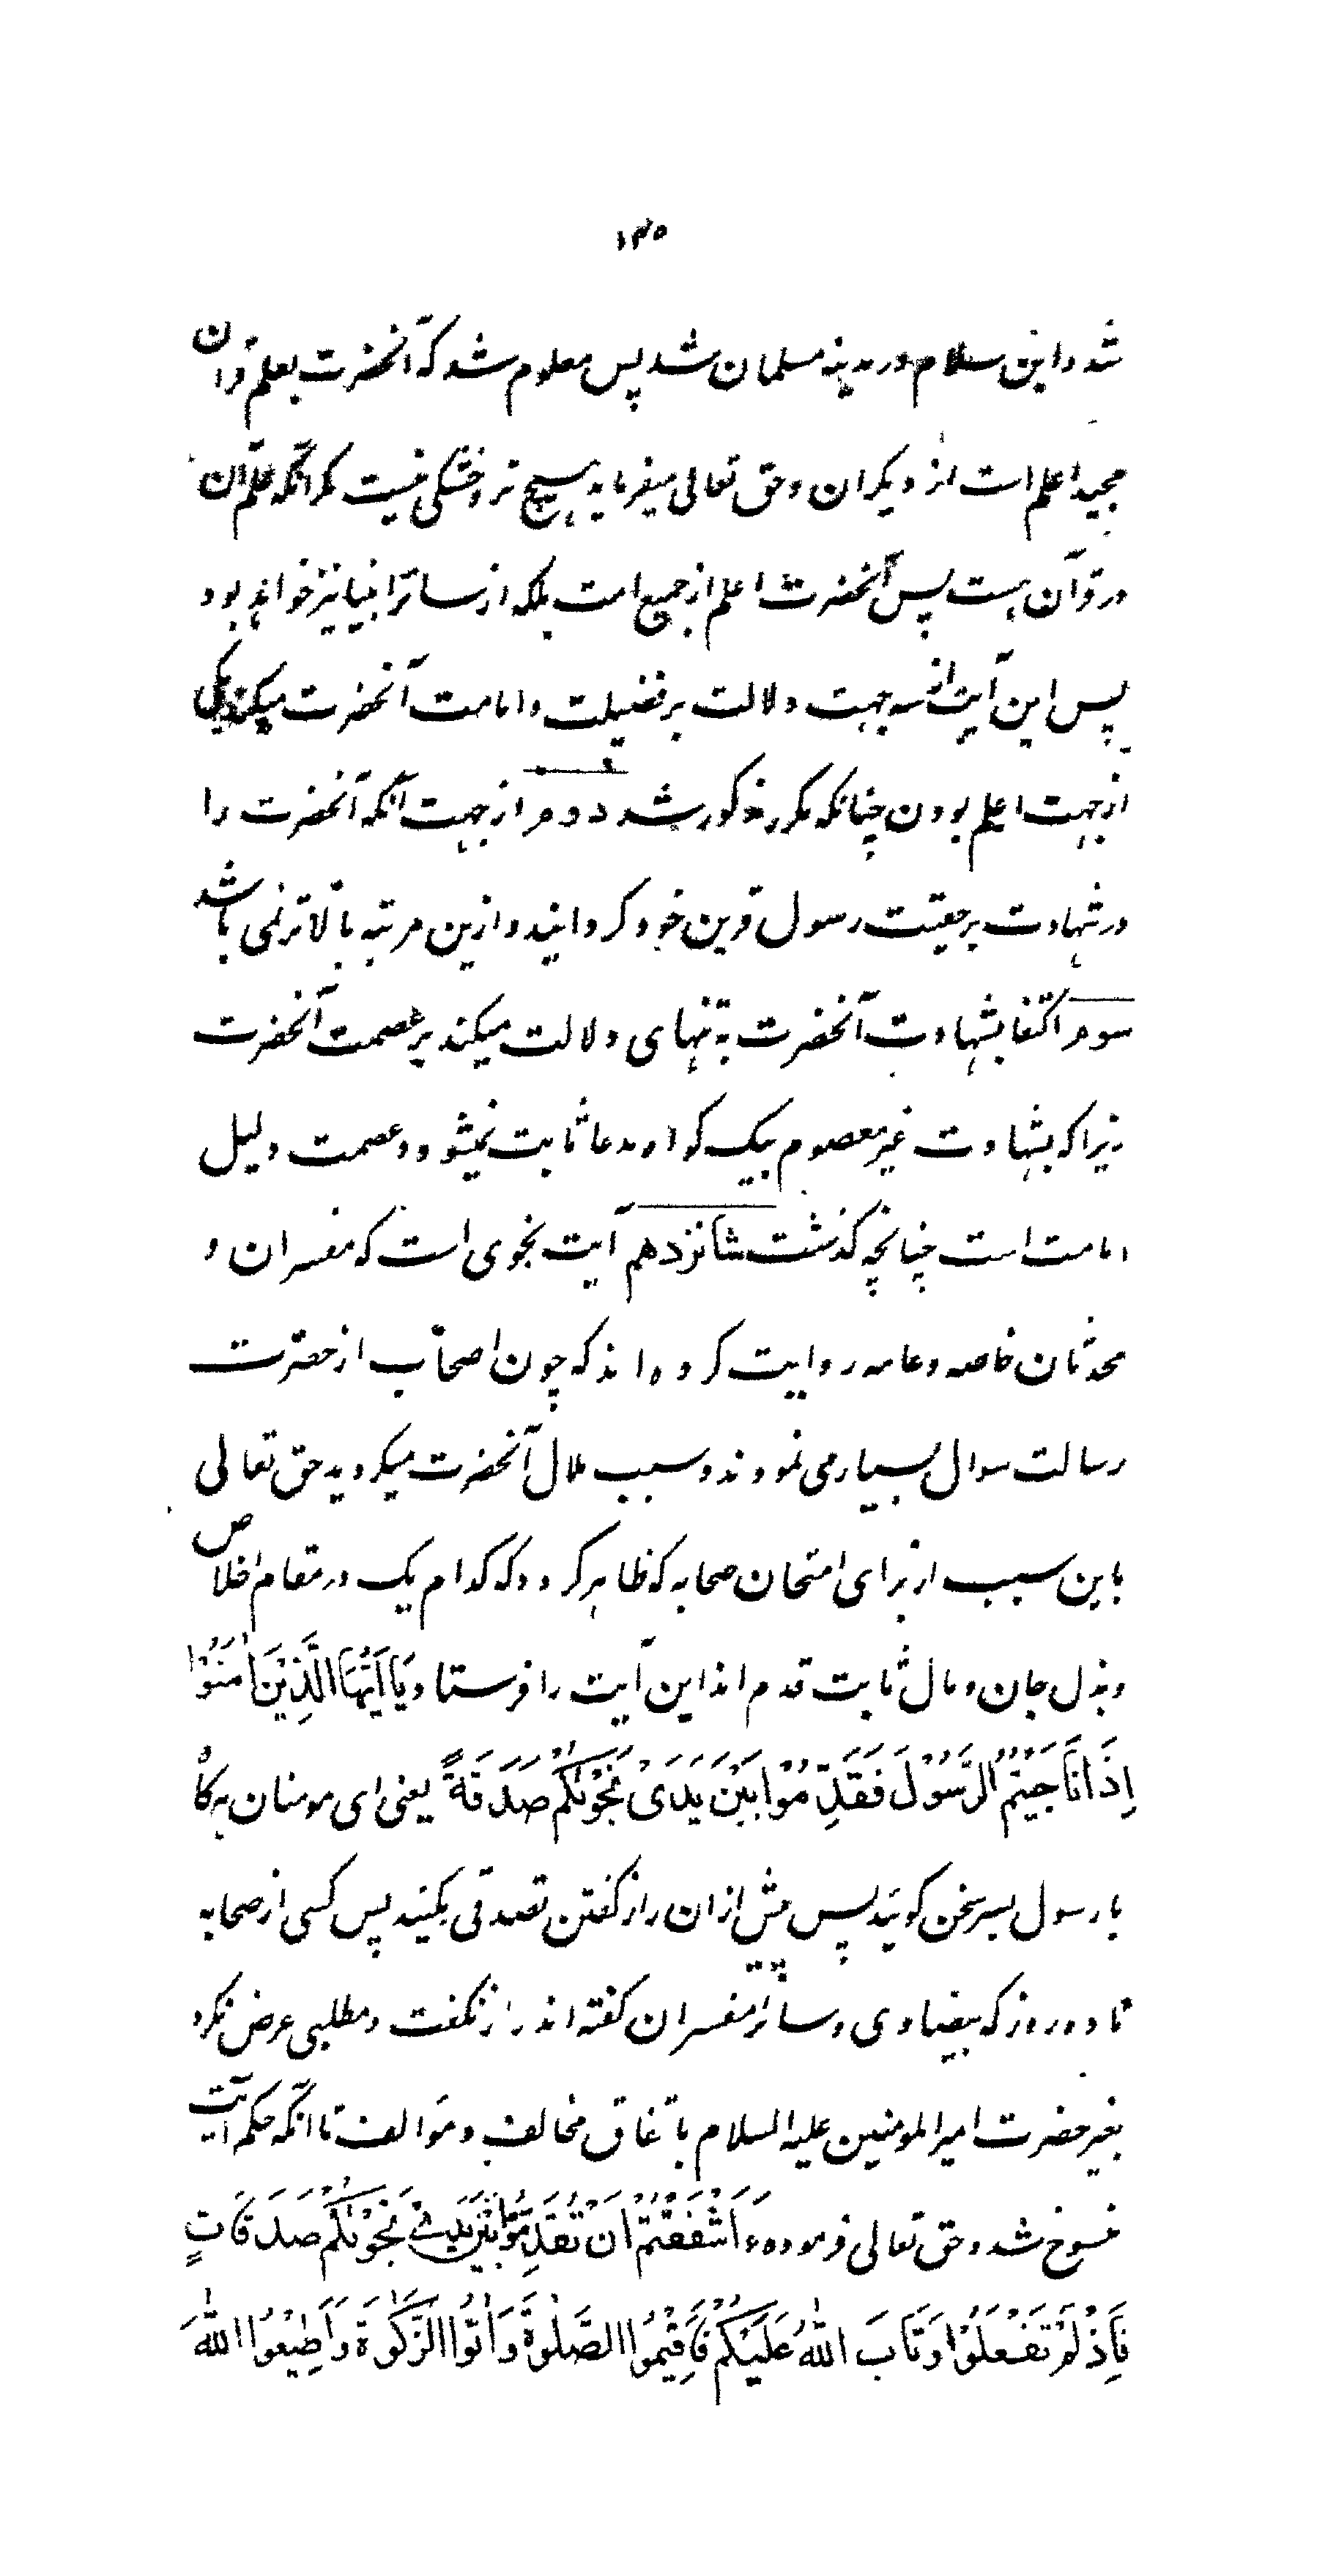 ۱۳۵
شد و ابن سلام در مدینه مسلمان شد پس معلوم شد که آنحضرت بعلم قرآن
مجید اعلم است از دیگران و حق تعالی میفرماید هیچ تر و خشکی نیست مگر آنکه علم آن
در قرآن هست پس آنحضرت اعلم از جمیع امت بلکه از سائر انبیا نیز خواهد بود
پس این آیت از سه جهت دلالت بر فضیلت و امامت آنحضرت میکند یکی
از جهت اعلم بودن چنانکه مکرر مذکور شد دوم از جهت آنکه آنحضرت را
در شهادت بر حقیت رسول قرین خود گردانید و ازین مرتبه بالاتر نمی باشد
سوم اکتفا بشهادت آنحضرت به تنهای دلالت میکند بر عصمت آنحضرت
زیرا که بشهادت غیر معصوم بیک گواه مدعا ثابت نمیشود و عصمت دلیل
امامت است چنانچه گذشت شانزدهم آیت نجوی است که مفسران و
محدثان خاصه و عامه روایت کرده اند که چون اصحاب از حضرت
رسالت سوال بسیار می نمودند و سبب ملال آنحضرت میگردید حق تعالی
باین سبب از برای امتحان صحابه که ظاهر گردد که کدام یک در مقام اخلاص
و بذل جان و مال ثابت قدم اند این آیت را فرستاد یَا اَیُّهَا الَّذِیْنَ اٰمَنُوْا
اِذَا نَاجَیْتُمُ الرَّسُوْلَ فَقَدِّمُوْا بَیْنَ یَدَیْ نَجْوٰىكُمْ صَدَقَةً یعنی ای مومنان هرگاه
با رسول بسر سخن گوئید پس پیش ازان راز گفتن تصدقی بکنید پس کسی از صحابه
تا ده روز که بیضاوی و سائر مفسران گفته اند راز نگفت و مطلبی عرض نکرد
بغیر حضرت امیر المومنین علیه السلام باتفاق مخالف و موالف تا آنکه حکم آیت
منسوخ شد و حق تعالی فرموده ءَاَشْفَقْتُمْ اَنْ تُقَدِّمُوْا بَیْنَ یَدَیْ نَجْوٰىكُمْ صَدَقَاتٍ
فَاِذْ لَمْ تَفْعَلُوْا وَ تَابَ اللّٰهُ عَلَیْكُمْ فَاَقِیْمُوا الصَّلٰوةَ وَ اٰتُوا الزَّكٰوةَ وَ اَطِیْعُوا اللّٰهَ